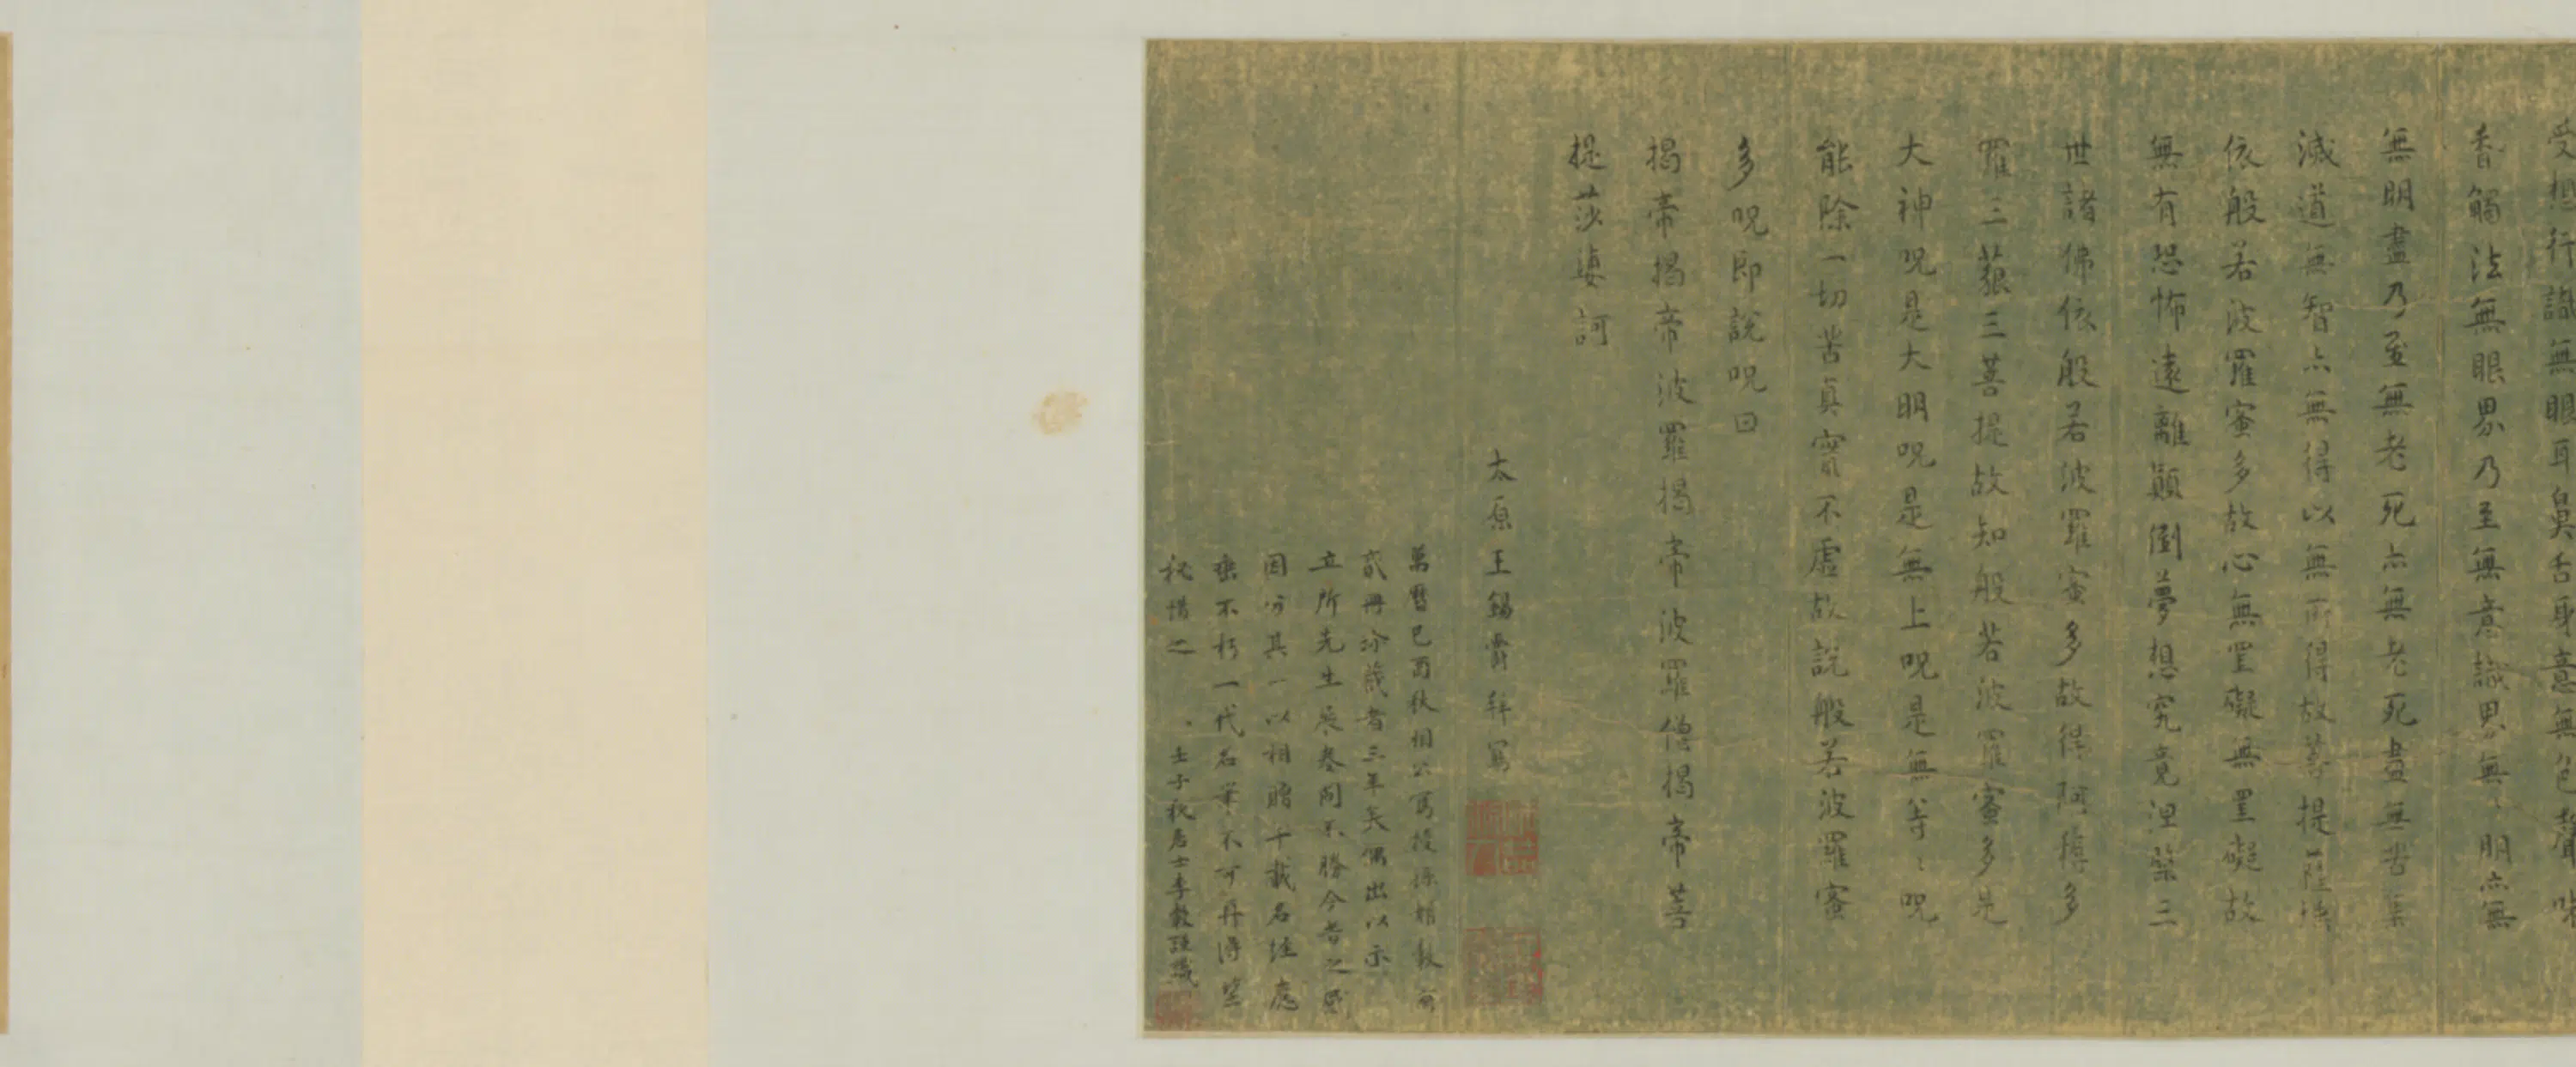 受想行識無眼耳鼻舌身意無色聲
香觸法無眼界乃至無意識界無〻明亦無
無明盡乃至無老死亦無老死盡無苦集
滅道無智亦無得以無所得故菩提薩埵
依般若波羅蜜多故心無罣礙無罣礙故
無有恐怖遠離顛倒夢想究竟涅槃三
世諸佛依般若波羅蜜多故得阿耨多
羅三藐三菩提故知般若波羅蜜多是
大神呪是大明呪是無上呪是無等〻呪
能除一切苦真實不虛故說般若波羅蜜
多呪即說呪曰
揭帝揭帝波羅揭帝波羅僧揭帝菩
提莎婆訶
太原王錫爵拜寫
萬曆己酉秋相公寫授
貳冊珍藏者三年矣偶出以示
立所先生展卷間不勝今昔之感
因分其一以相贈千載名經應
垂不朽一代名筆不可再得望
秘惜之 壬子秋居士李